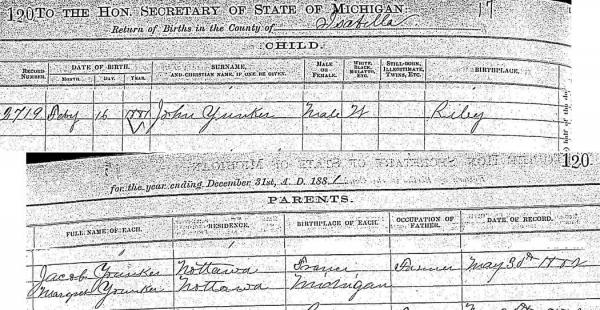 120 TO THE HON. SECRETARY OF STATE OF MICHIGAN: 17
Return of Births in the County of Isabella
CHILD.
RECORD NUMBER. DATE OF BIRTH. MONTH. DAY. YEAR. SURNAME, AND CHRISTIAN NAME, IF ONE BE GIVEN. MALE OR FEMALE. WHITE, BLACK, MULATTO, ETC. STILL-BORN, ILLEGITIMATE, TWINS, ETC. BIRTHPLACE.
2719 16 1881 John Yunker Male W. Riley
120
for the year ending December 31st, A. D. 1881
PARENTS.
FULL NAME OF EACH. RESIDENCE. BIRTHPLACE OF EACH. OCCUPATION OF FATHER. DATE OF RECORD.
Jacob Yunker Nottawa France Farmer May 30th 1882
Margret Younker Nottawa Michigan